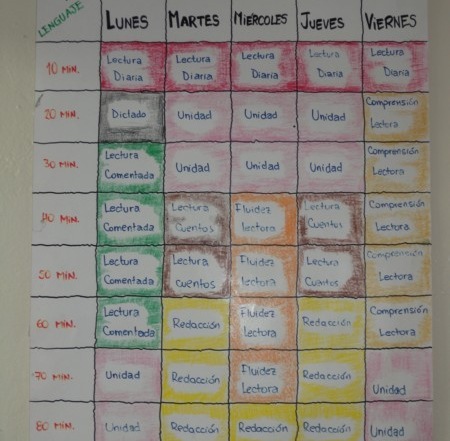 LENGUAJE LUNES MARTES MIERCOLES JUEVES VIERNES
10 MIN. Lectura Diaria Lectura Diaria Lectura Diaria Lectura Diaria Lectura Diaria
20 MIN. Dictado Unidad Unidad Unidad Comprensión Lectora
30 MIN. Lectura Comentada Unidad Unidad Unidad Comprensión Lectora
40 MIN. Lectura Comentada Lectura Cuentos Fluidez lectora Lectura Cuentos Comprensión Lectora
50 MIN. Lectura Comentada Lectura cuentos Fluidez lectora Lectura Cuentos Comprensión Lectora
60 MIN. Lectura Comentada Redacción Fluidez Lectora Redacción Comprensión Lectora
70 MIN. Unidad Redacción Fluidez Lectora Redacción Unidad
80 MIN. Unidad Redacción Redacción Redacción Unidad